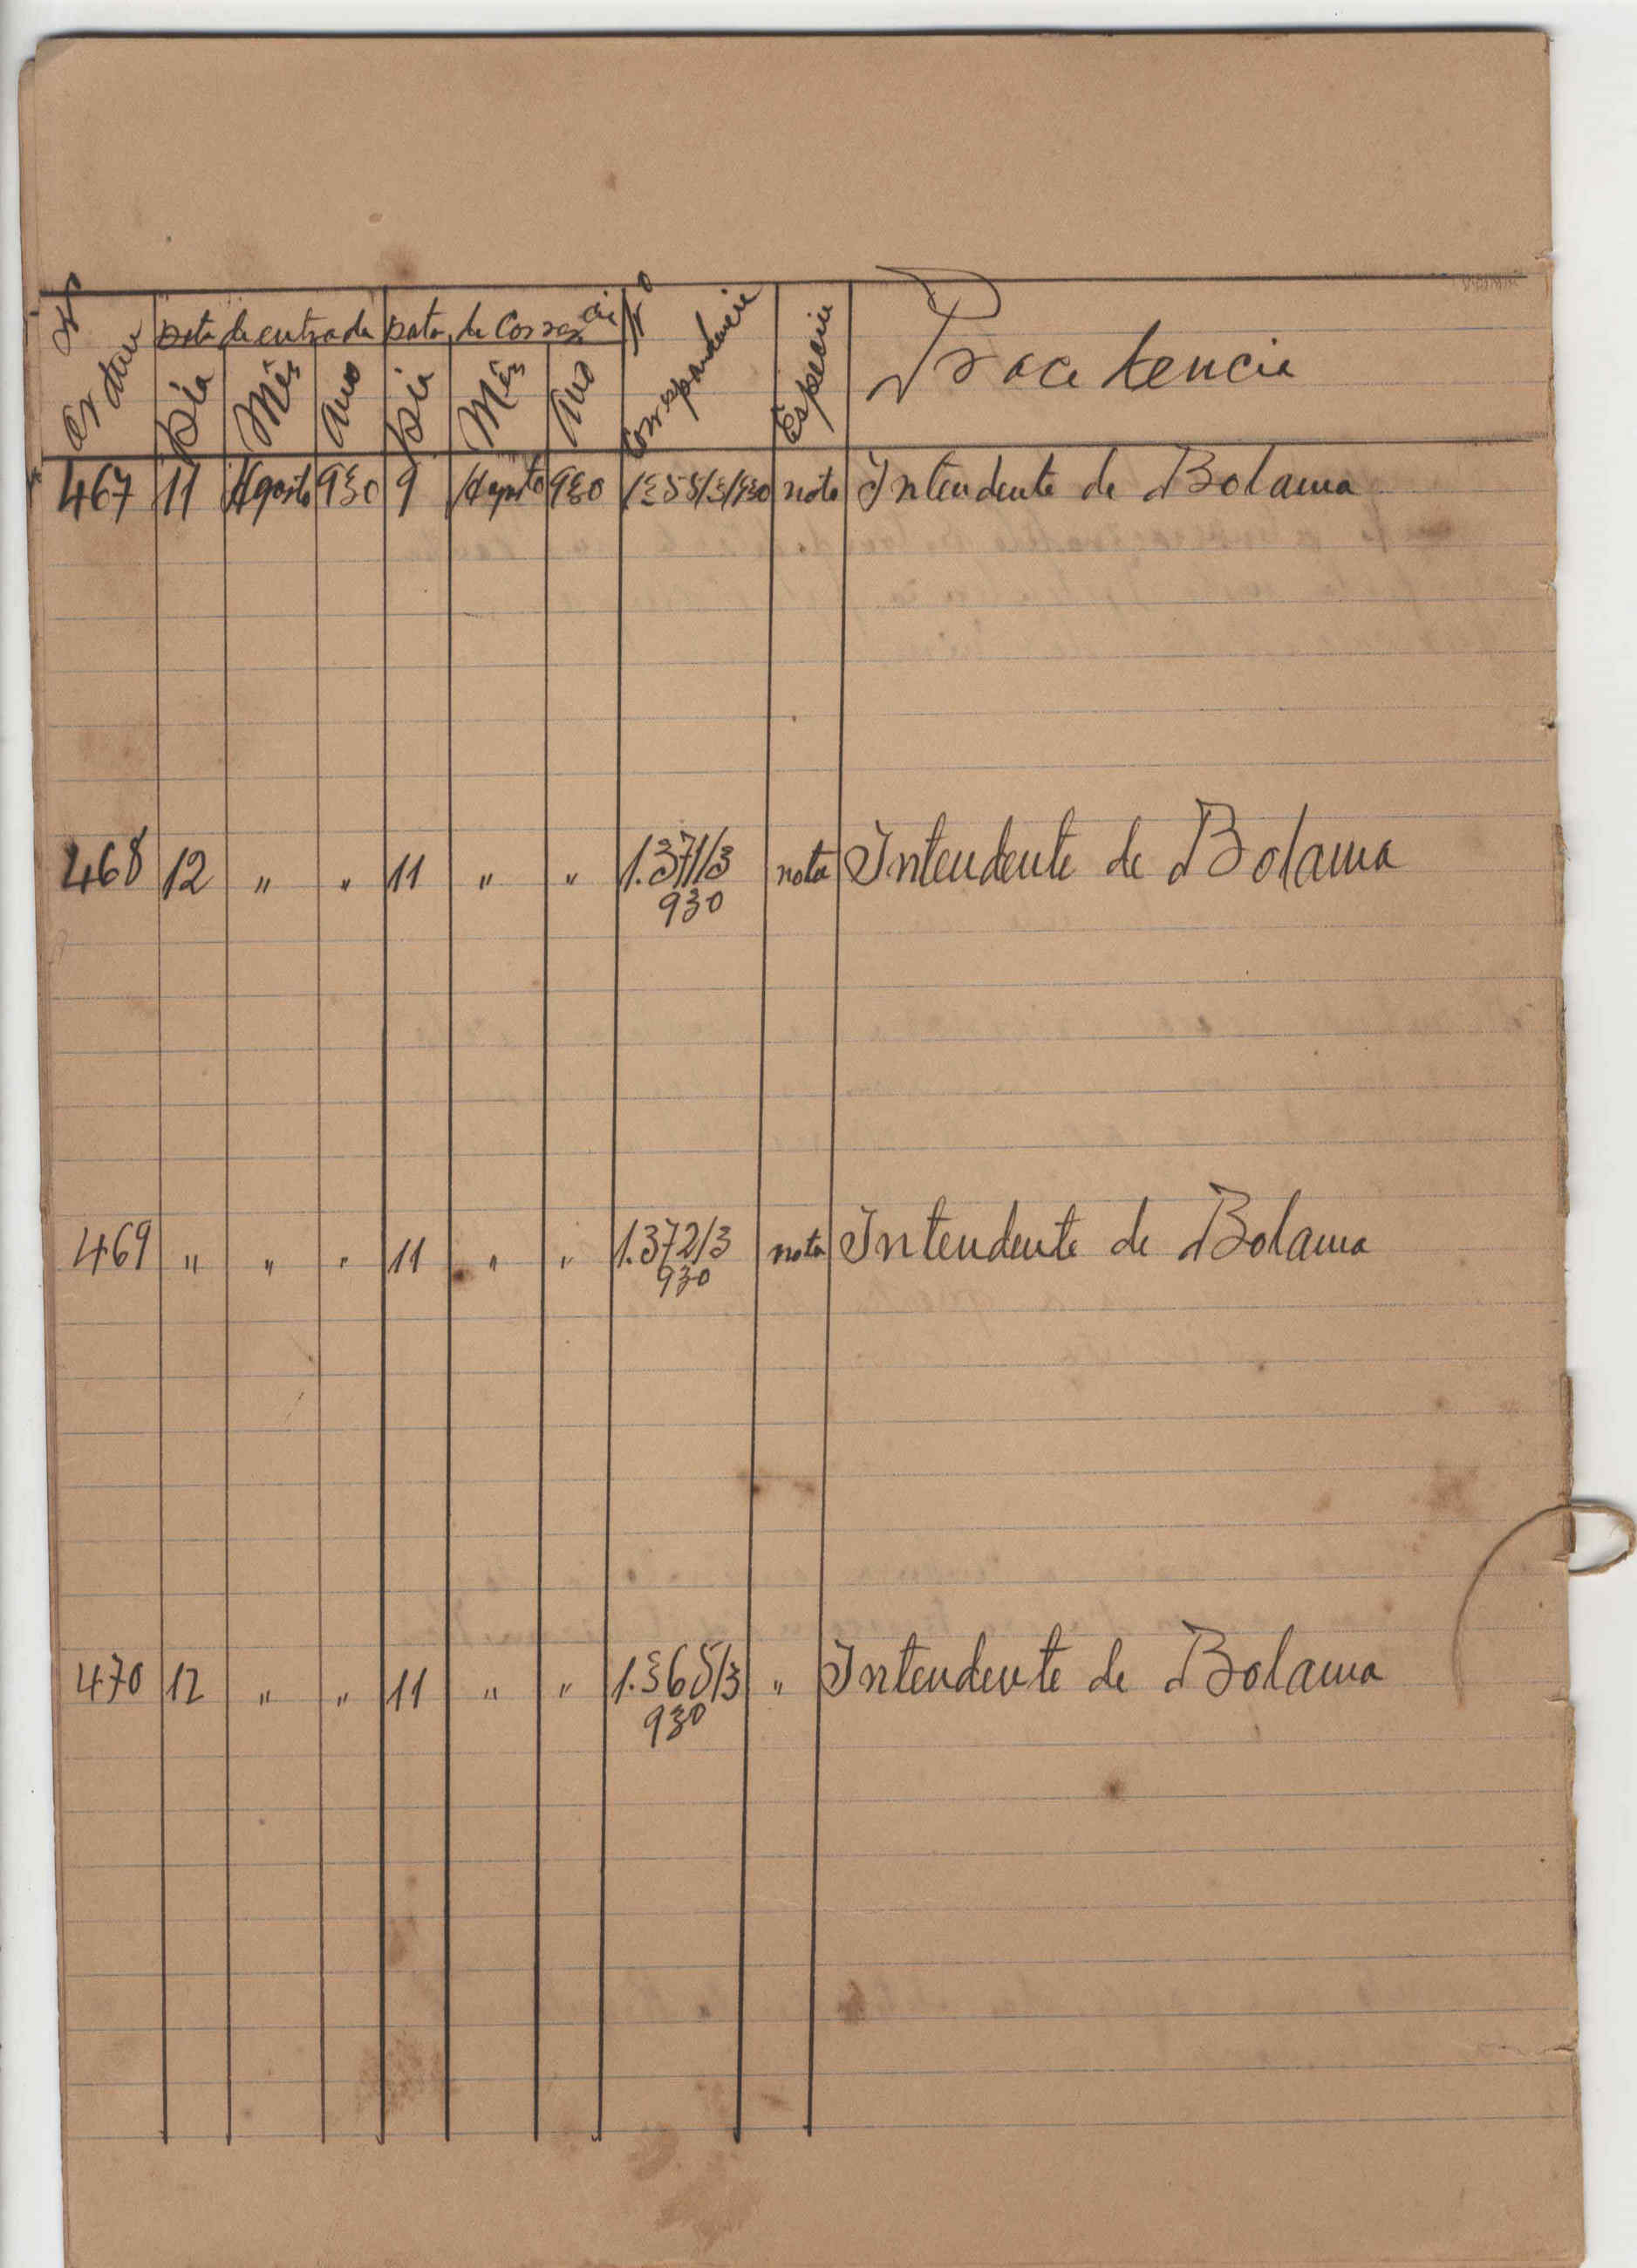 Nº Ordem
Data de entrada Data de Corresp.cia Nº Correspondencia Especie Procedencia
Dia Mês Ano Dia Mês Ano
467 11 Agosto 930 9 Agosto 930 1355/3/930 nota Intendente de Bolama
468 12 " " 11 " " 1.371/3 nota Intendente de Bolama
930
469 " " " 11 " " 1.372/3 nota Intendente de Bolama
930
470 12 " " 11 " " 1.365/3 " Intendente de Bolama
930